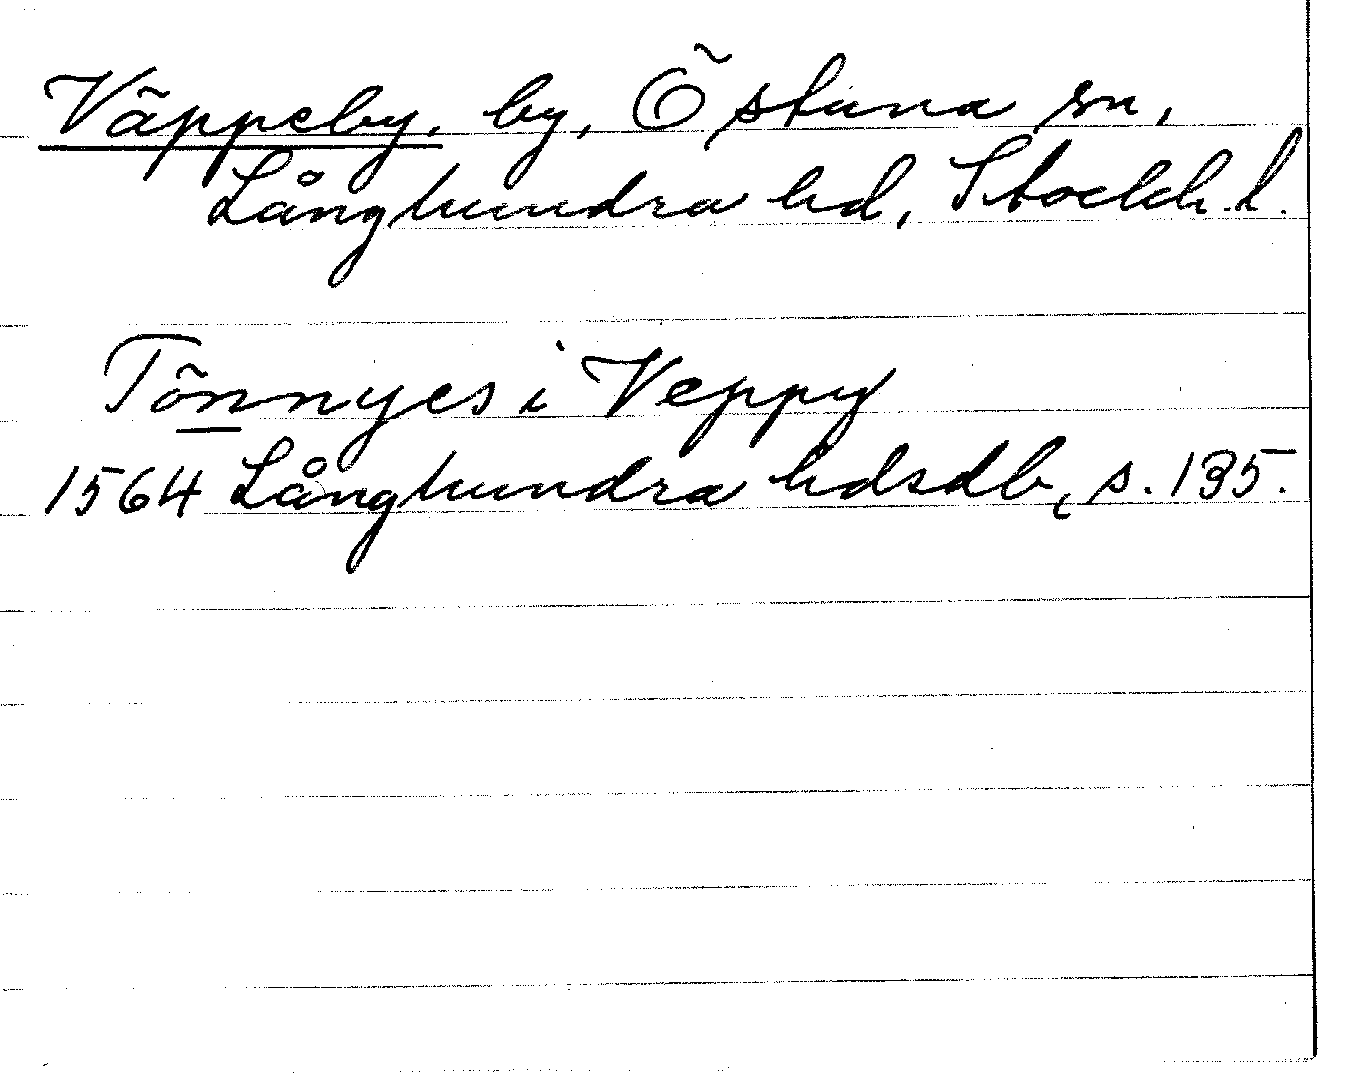 Väppeby, by, Östuna sn,
Långhundra hd, Stockh. l.
Tönnyes i Veppy
1564 Långhundra hdsdb, s. 135.